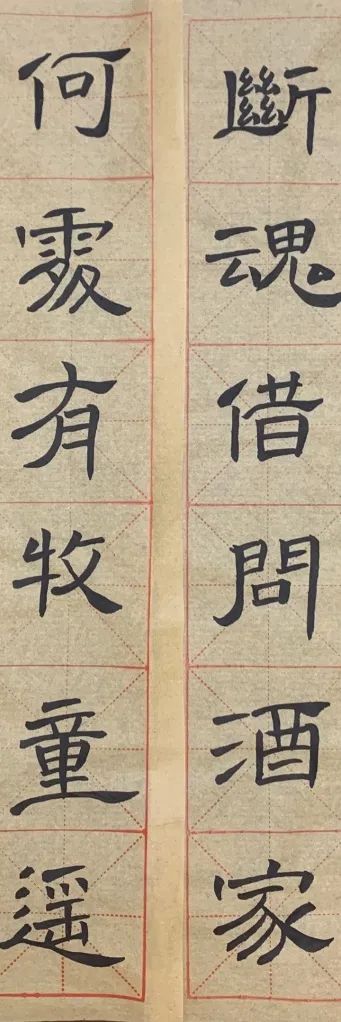 斷魂借問酒家
何處有牧童遥